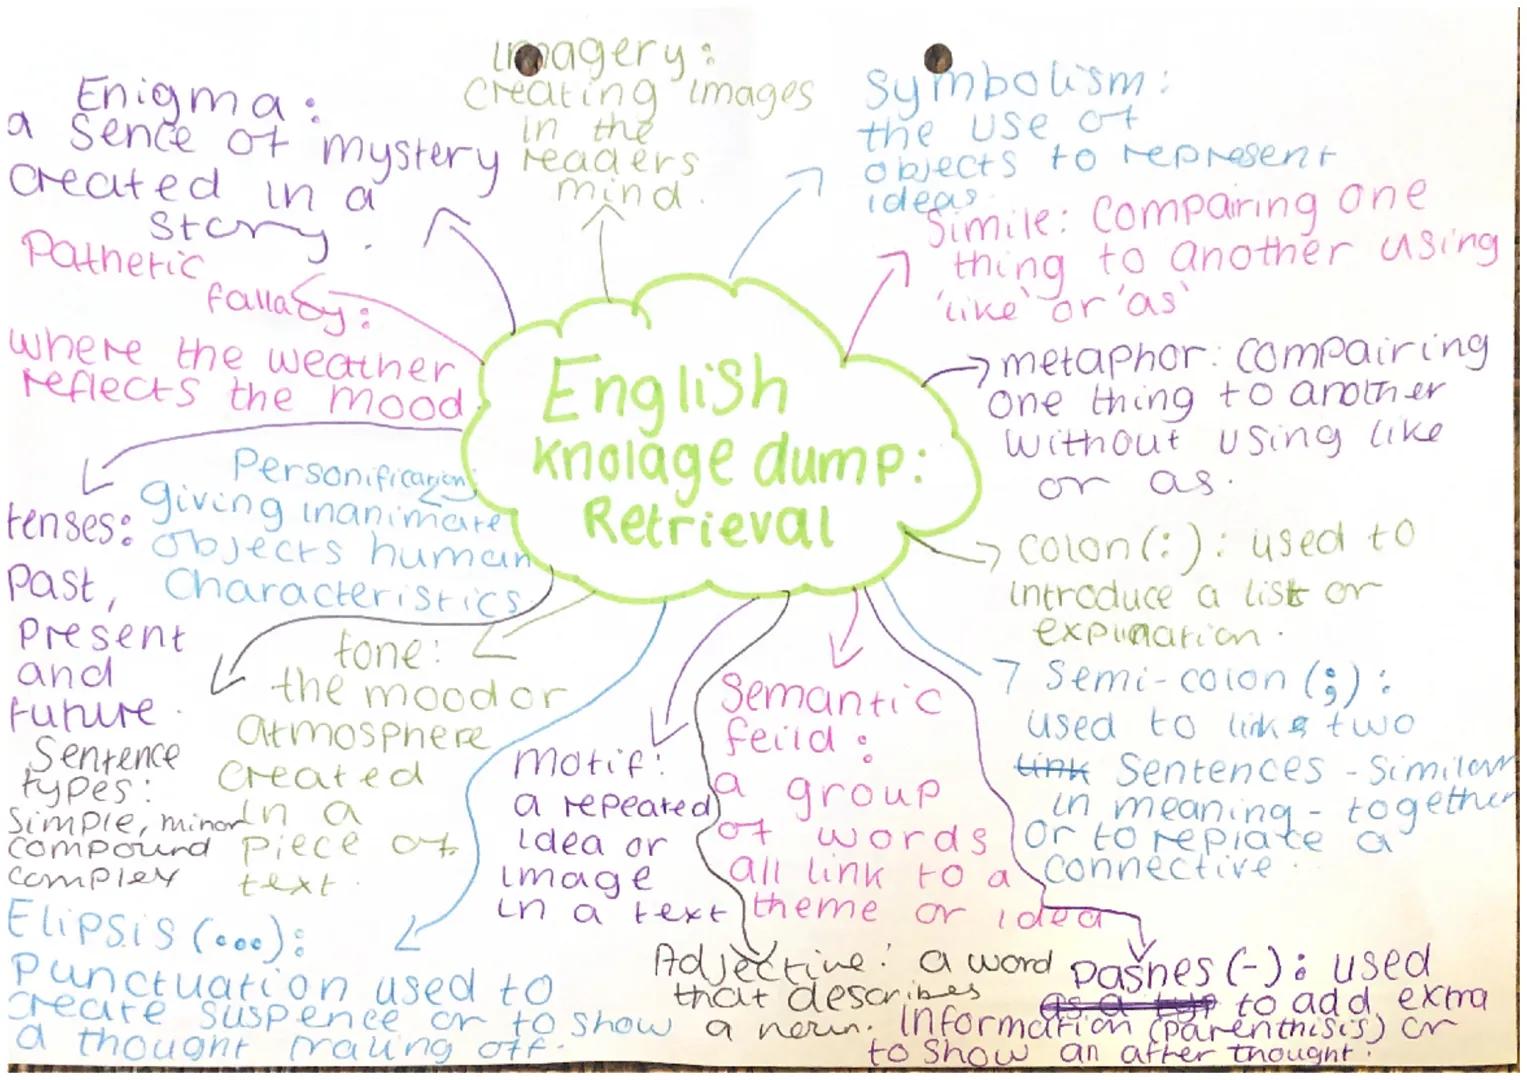 English
knolage dump:
Retrieval
Enigma:
a sence of mystery
created in a
story.
Imagery:
creating images
in the
readers
mind.
Symbolism:
the use of
objects to represent
ideas.
Simile: Compairing one
thing to another using
'like' or 'as'
metaphor: compairing
one thing to another
without using like
or as.
colon (:): used to
introduce a list or
explination.
Semi-colon (;):
used to link two
link sentences - similar
in meaning - together
or to replace a
connective.
Dashes (-): used
to add extra
information (parenthisis) or
to show an after thought.
Semantic
feild:
a group
of words
all link to a
theme or idea
Adjective: a word
that describes
a noun.
Motif:
a repeated
idea or
image
in a text
Elipsis (...):
Punctuation used to
create suspence or to show
a thought trailing off.
tone:
the mood or
atmosphere
created
in a
piece of
text.
Sentence
types:
Simple, minor
compound
complex
Personification:
giving inanimate
objects human
characteristics.
tenses:
past,
present
and
future.
Pathetic
fallacy:
where the weather
reflects the mood